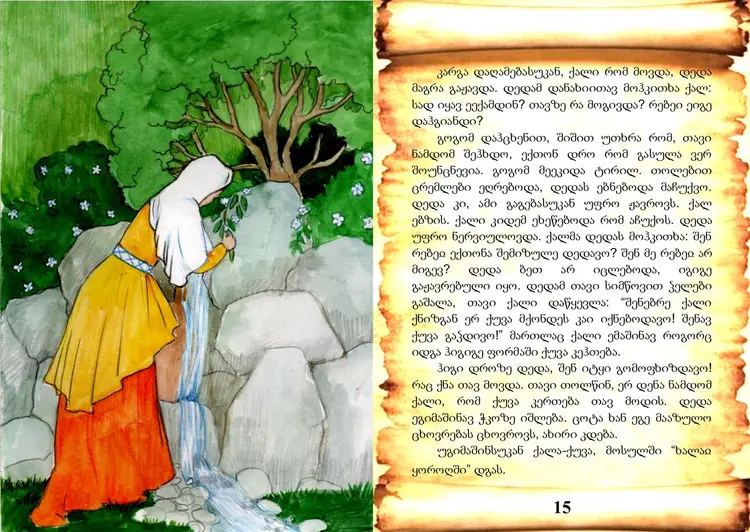 კარგა დაღამებასუკან, ქალი რომ მოვდა, დედა
მაგრა გაჟავდა. დედამ დანახიითავ მოჰკითხა ქალ:
სად იყავ ეექამდინ? თავზე რა მოგივდა? რებეი ეიგე
დაჰგიანდი?
გოგომ დაჰცხენით, შიშით უთხრა რომ, თავი
ნამდომ შეჰხდო, ექთონ დრო რომ გასულა ვერ
შოუნცნევია. გოგომ მეეკიდა ტირილ. თოლებით
ცრემლები ეღრებოდა, დედას ებნებოდა მაჩუქვო.
დედა კი, ამი გაგებასუკან უფრო ჟავროვს. ქალ
ებზის. ქალი კიდემ ეხეწებოდა რომ აჩუქოს. დედა
უფრო ნერვიულოვდა. ქალმა დედას მოჰკითხა: შენ
რებეჲ ექთონა შემიზულე დედავო? შენ მე რებეჲ არ
მიგევ? დედა ბეთ არ იცლებოდა, იგიგე
გაჟავრებული იყო. დედამ თავი სიმწოვით ჴელები
გაშალა, თავი ქალი დაწყევლა: “შენებრე ქალი
ქნიზგან ერ ქუვა მქონდეს კაი იქნებოდავო! შენავ
ქუვა გაჴდივო!” მართლაც ქალი ემაშინავ როგორც
იდგა ჰიგიგე ფორმაში ქუვა კეჰთება.
ჰიგი დროზე დედა, შენ იტყი გომოფხიზდავო!
რაც ქნა თავ მოვდა. თავი თოლწინ, ერ დენა ნამდომ
ქალი, რომ ქუვა კერთება თავ მოდის. დედა
ეგიმაშინავ ჭკოზე იშლება. ცოტა ხან ეგე მააზულო
ცხოვრებას ცხოვროვს, ახირი კდება.
უგიმაშინსუკან ქალა-ქუვა, მოსულში “ხალაჲ
ყოროღში” დგას.
15